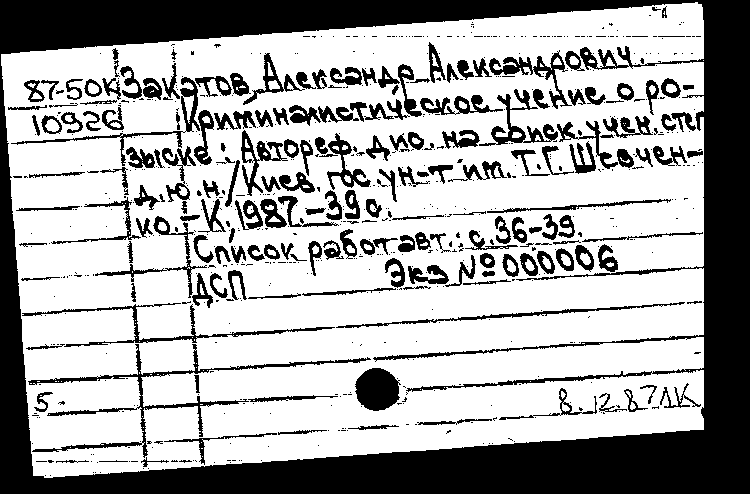 87-50К Закатов, Александр Александрович.
10926 Криминалистическое учение о ро-
зыске : Автореф. дис. на соиск. учен. степ
д.ю.н. / Киев. гос. ун-т им. Т.Г. Шевчен-
ко. - К., 1987. - 39 с.
Список работ авт.: с. 36-39.
ДСП Экз № 000006
5.
8.12.87 ЛК